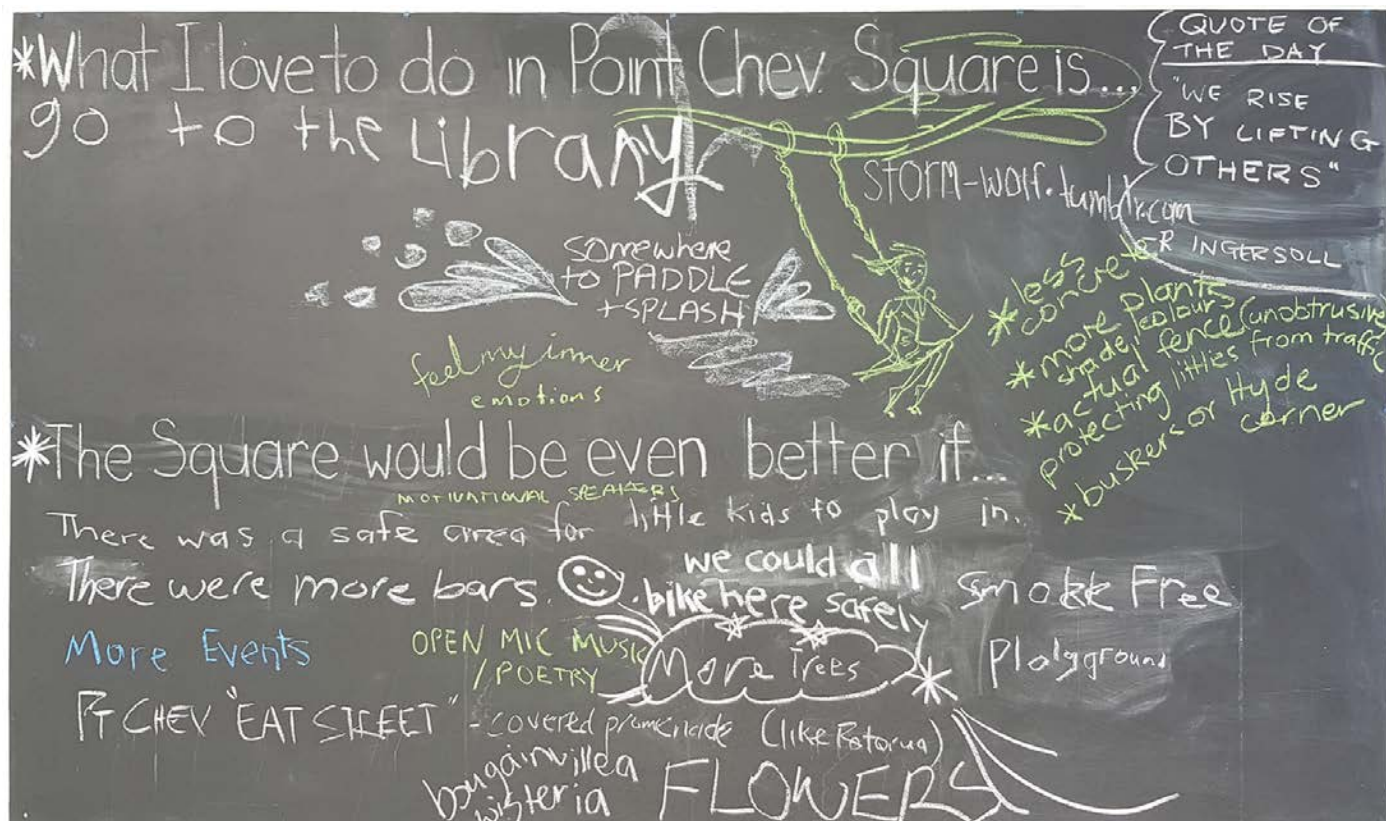 *What I love to do in Point Chev. Square is...
go to the Library
QUOTE OF
THE DAY
"WE RISE
BY LIFTING
OTHERS"
R INGERSOLL
storm-wolf.tumblr.com
somewhere
to PADDLE
+SPLASH!
feel my inner
emotions
*less
concrete
*more plants
shade, colours
*actual fence (unobtrusive)
protecting litties from traffic
*buskers or Hyde
corner
*The Square would be even better if...
MOTIVATIONAL SPEAKERS
There was a safe area for little kids to play in.
There were more bars.
we could all
bike here safely
Smokk Free
More Events
OPEN MIC MUSIC
/POETRY
More Trees
Playgground
PT CHEV "EAT STREET" - covered promenade (like Rotorua)
bougainvillea
wisteria
FLOWERS